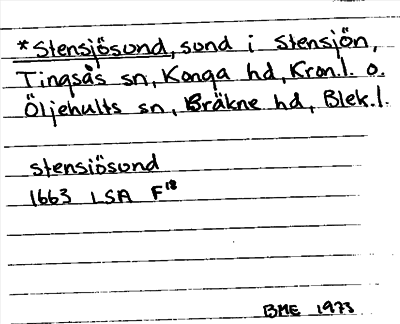 *Stensjösund, sund i Stensjön,
Tingsås sn, Konga hd, Kron.l. o.
Öljehults sn, Bräkne hd, Blek.l.
stensiösund
1663 LSA F18
BME 1973